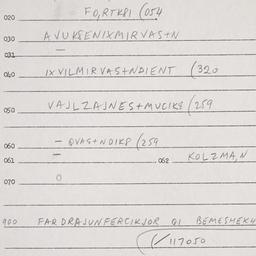 020 FO,RTKPI (054
030 AVUKSENIXMIRVAS+N
031 —
040 IXVILMIRVAS+NDIENT (320
050 VAJLZAJNES+MUCIKS (259
060 — QVAS+NDIKP (259
061 — 062 KOLZMA,N
070 0
900 FARDRAJUNFERCIKJOR QI BEMESHEKH
(✓117050